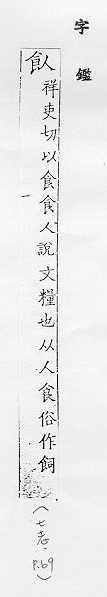 字鑑
飤
祥吏切以食食人說文糧也从人食俗作飼
（七志 P.69）